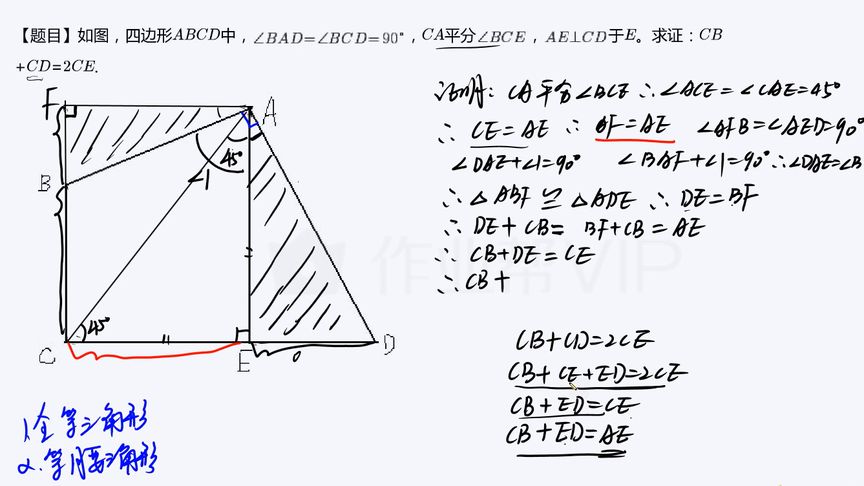 【题目】如图，四边形ABCD中，∠BAD=∠BCD=90°，CA平分∠BCE，AE⊥CD于E。求证：CB
+CD=2CE.
证明：CA平分∠BCE ∴∠ACE=∠CAE=45°
∴ CE=AE ∴ AF=AE ∠AFB=∠AED=90°
∠DAE+∠1=90° ∠BAF+∠1=90° ∴∠DAE=∠B
∴ △ABF ≌ △ADE ∴ DE=BF
∴ DE+CB= BF+CB=AE
∴ CB+DE=CE
∴ CB+
F
A
45°
B
∠1
45°
C
E
D
作业帮VIP
CB+CD=2CE
CB+CE+ED=2CE
CB+ED=CE
CB+ED=AE
1.全等三角形
2.等腰三角形